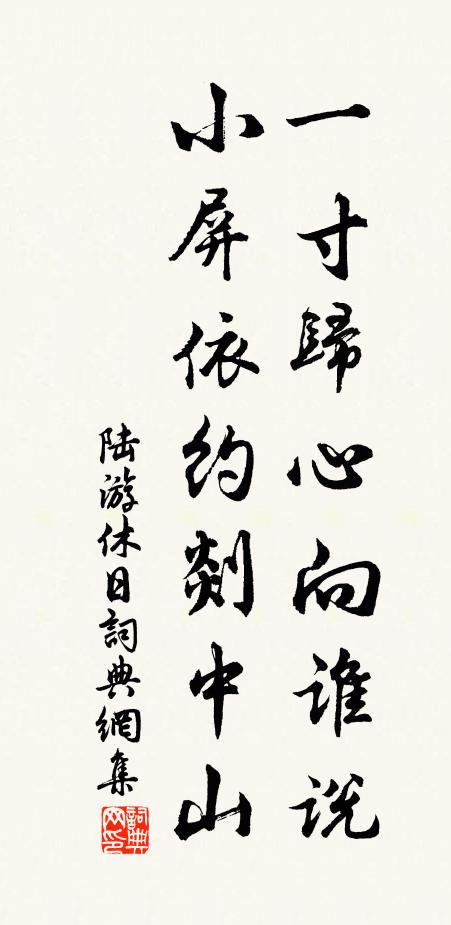 一寸歸心向誰説
小屏依約剡中山
陸游休日詞典網集
詞典
网印